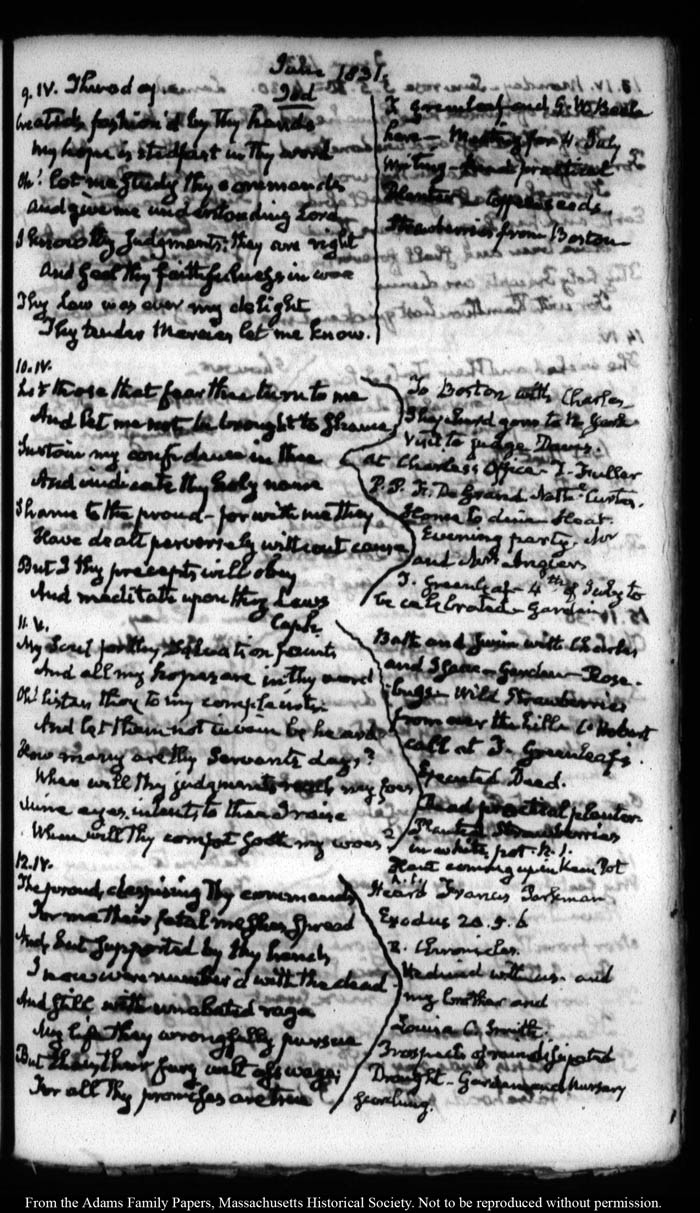 June 1831.
9. IV. Thursday
Iod
Created, fashion'd by thy hands
My hope is stedfast in thy word
Oh! let me study thy commands
And give me understanding Lord
I know thy judgments; they are right
And feel thy faithfulness in woe
Thy Law was ever my delight
Thy tender Mercies let me know.
T Greenleaf and G. W. Beale
here — Meeting for 4. July
Writing — Read practical
Planter
Strawberries from Boston
10. IV.
Let those that fear thee turn to me
And let me not be brought to shame
Sustain my confidence in thee
And vindicate thy holy name
Shame to the proud — for with me they
Have dealt perversely without cause
But I thy precepts will obey
And meditate upon thy Laws
To Boston with Charles
Shepherd gone to N. York
Visit to judge Davis.
At Charles's Office — T. Fuller
P. P. F. DeGrand Nathl Curtis.
Home to dine — Heat.
Evening party. Mr
and Mrs Angier
T. Greenleaf — 4th of July to
be celebrated — Garden
Caph.
11. V.
My Soul for thy Salvation faints
And all my hopes are in thy word
Oh! listen thou to my complaints
And let them not in vain be heard
How many are thy Servants days?
When will thy judgments reach my foes
Mine eyes intent to thee I raise
When will Thy comfort sooth my woes?
Bath and Swim with Charles
and Isaac — Garden — Rose-
bugs — Wild Strawberries
from over the hills
call at T. Greenleaf's.
Executed Deed.
Read practical planter
Planted Strawberries
in white pot. N. 1.
Plant coming up in
12. IV.
The proud, despising Thy commands
For me their fatal meshes spread
And, but supported by thy hands
I now were number'd with the dead
And still with unabated rage
My life they wrongfully pursue
But their fury
For all thy promises are true
Heard Francis Parkman
Exodus 20. 5. 6
2. Chronicles.
He dined with us. and
my brother and
Louisa C. Smith.
Prospects of rain dissipated
Drought — Garden and Nursery
scorching.
From the Adams Family Papers, Massachusetts Historical Society. Not to be reproduced without permission.